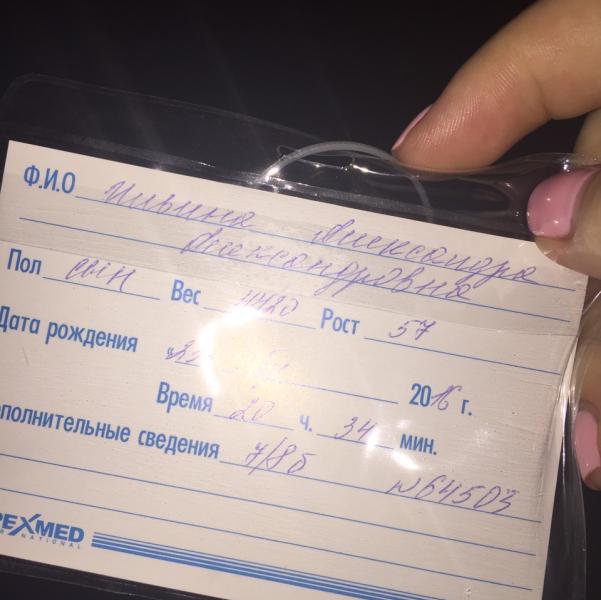 Ф.И.О Александра
Александровна
Пол сын Вес 4420 Рост 57
Дата рождения 2016 г.
Время 20 ч. 34 мин.
ополнительные сведения 7/8б
N64503
REXMED